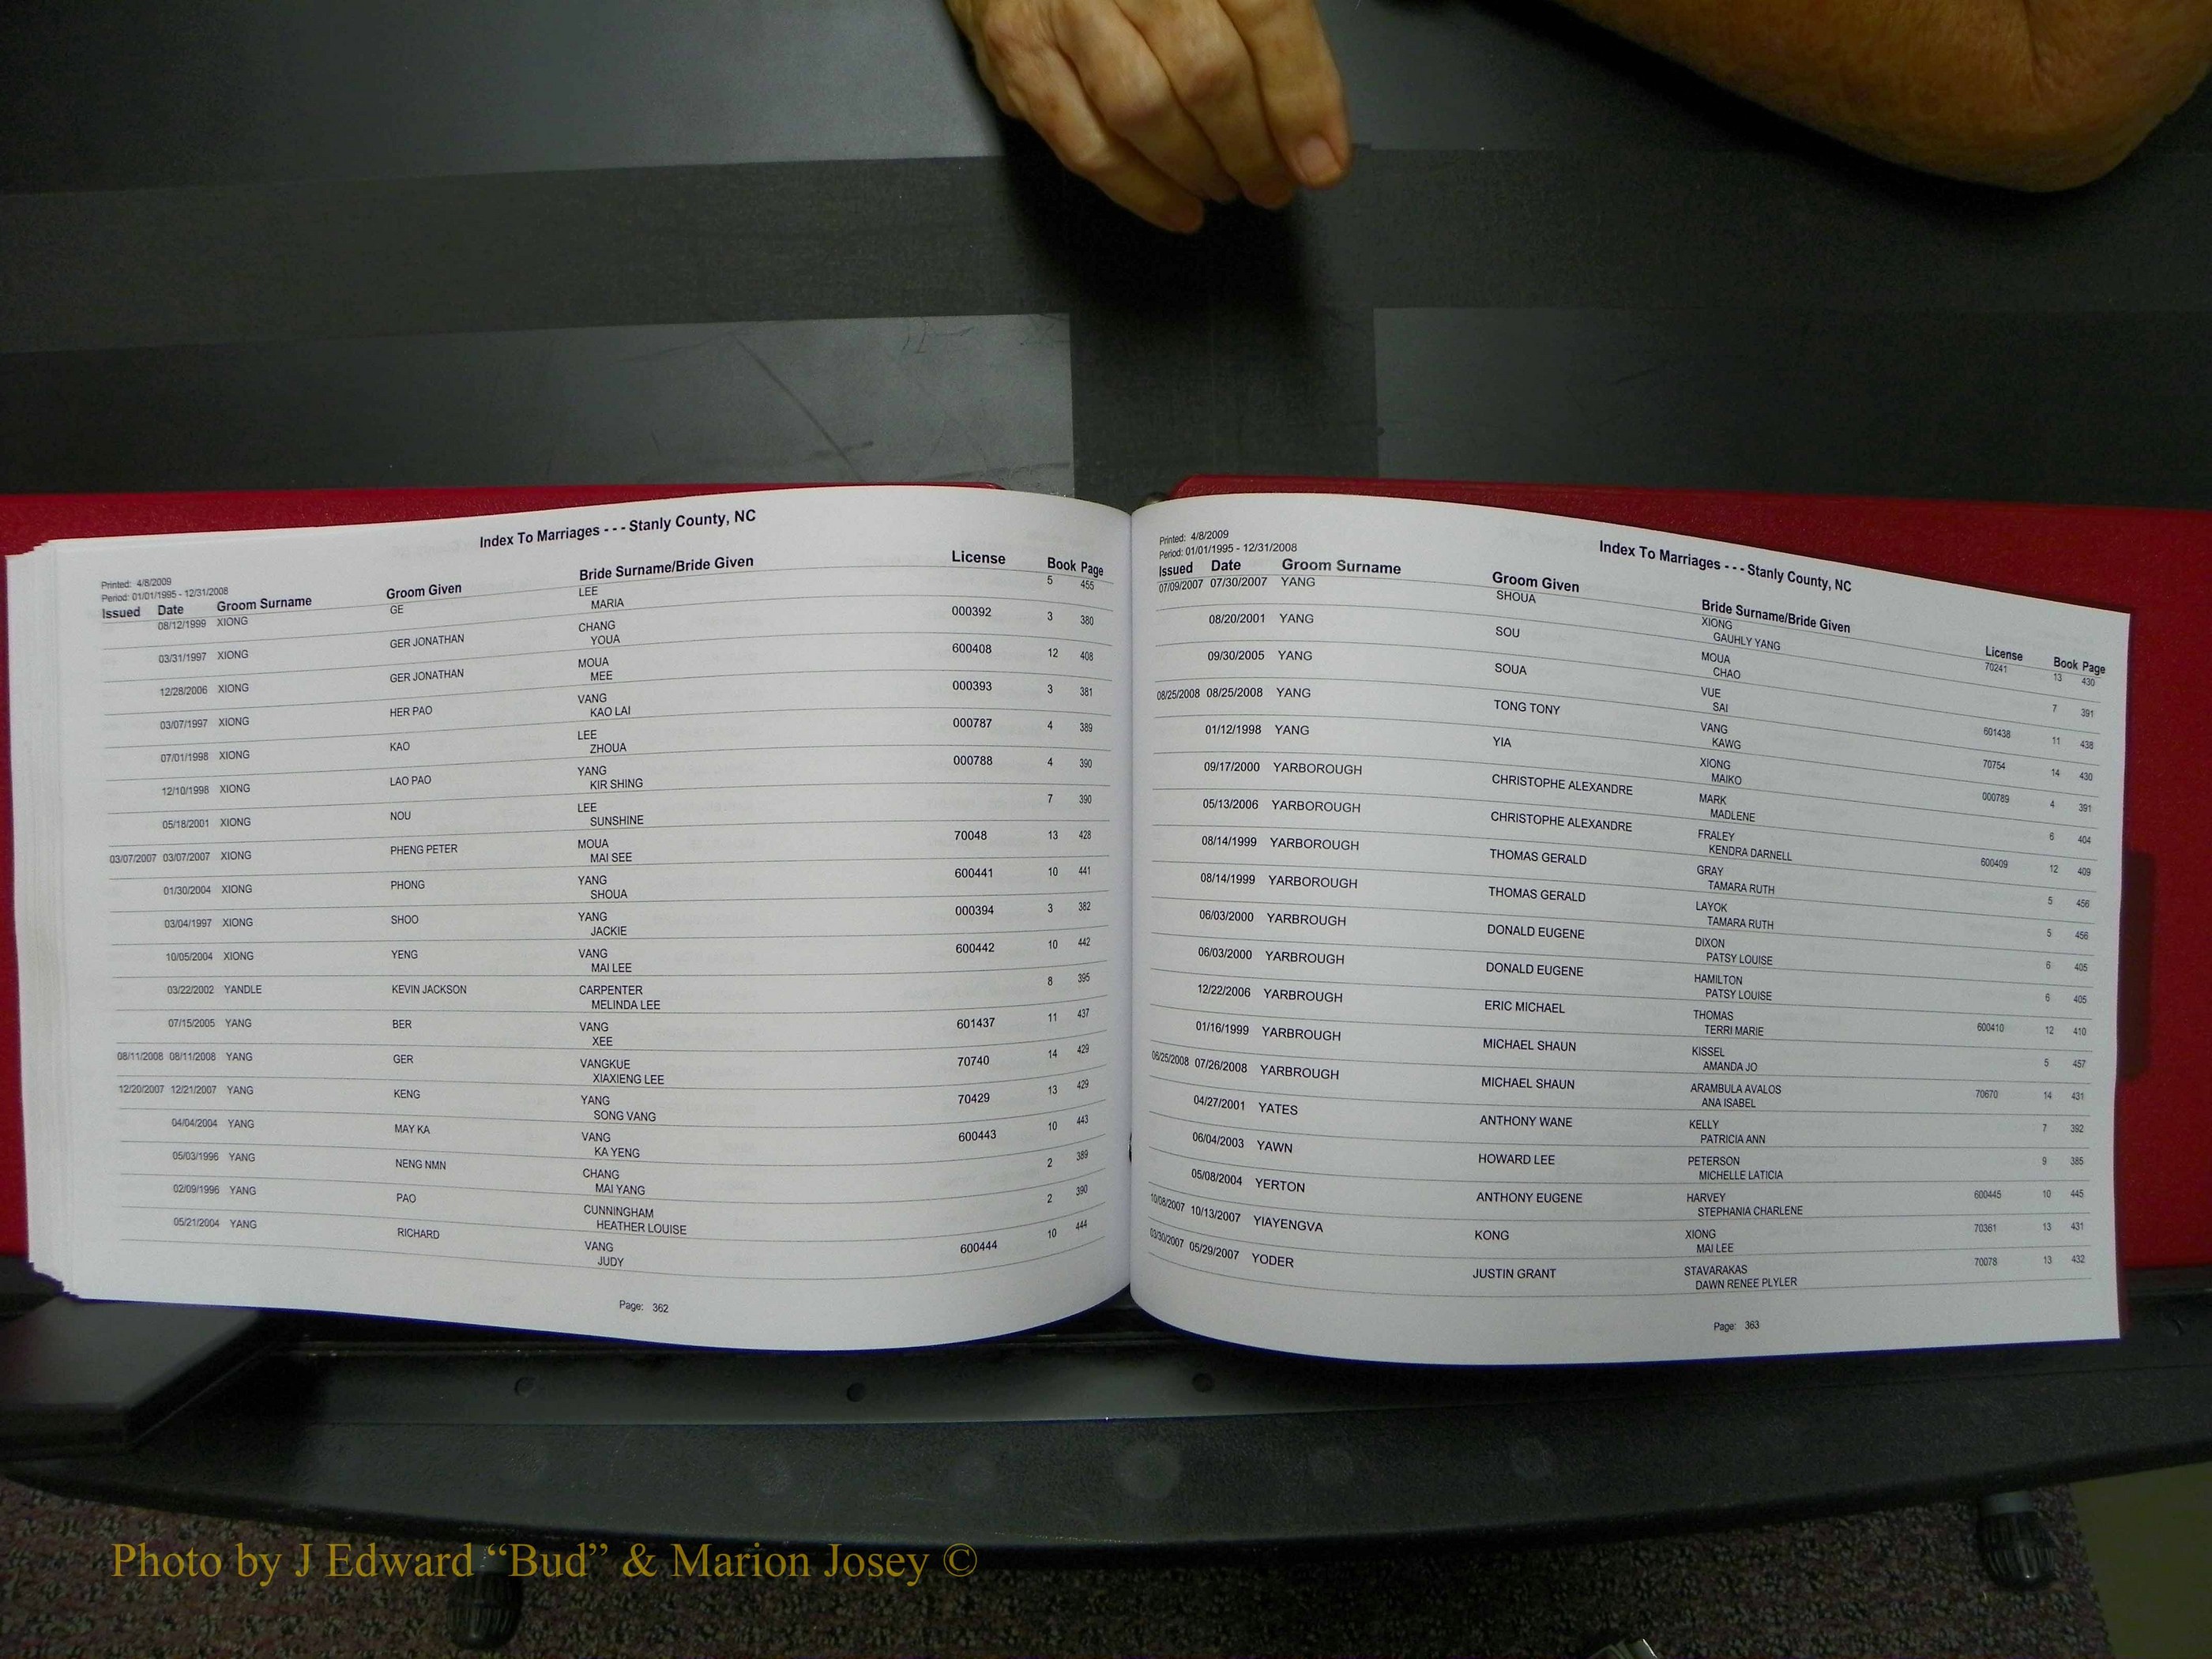 Index To Marriages - - - Stanly County, NC
Printed: 4/8/2009
Period: 01/01/1995 - 12/31/2008
Issued Date Groom Surname Groom Given Bride Surname/Bride Given License Book Page
08/12/1999 XIONG GE LEE 5 455
MARIA
03/31/1997 XIONG GER JONATHAN CHANG 000392 3 380
YOUA
12/28/2006 XIONG GER JONATHAN MOUA 600408 12 408
MEE
03/07/1997 XIONG HER PAO VANG 000393 3 381
KAO LAI
07/01/1998 XIONG KAO LEE 000787 4 389
ZHOUA
12/10/1998 XIONG LAO PAO YANG 000788 4 390
KIR SHING
05/18/2001 XIONG NOU LEE 7 390
SUNSHINE
03/07/2007 03/07/2007 XIONG PHENG PETER MOUA 70048 13 428
MAI SEE
01/30/2004 XIONG PHONG YANG 600441 10 441
SHOUA
03/04/1997 XIONG SHOO YANG 000394 3 382
JACKIE
10/05/2004 XIONG YENG VANG 600442 10 442
MAI LEE
03/22/2002 YANDLE KEVIN JACKSON CARPENTER 8 395
MELINDA LEE
07/15/2005 YANG BER VANG 601437 11 437
XEE
08/11/2008 08/11/2008 YANG GER VANGKUE 70740 14 429
XIAXIENG LEE
12/20/2007 12/21/2007 YANG KENG YANG 70429 13 429
SONG VANG
04/04/2004 YANG MAY KA VANG 600443 10 443
KA YENG
05/03/1996 YANG NENG NMN CHANG 2 389
MAI YANG
02/09/1996 YANG PAO CUNNINGHAM 2 390
HEATHER LOUISE
05/21/2004 YANG RICHARD VANG 600444 10 444
JUDY
Page: 362
Index To Marriages - - - Stanly County, NC
Printed: 4/8/2009
Period: 01/01/1995 - 12/31/2008
Issued Date Groom Surname Groom Given Bride Surname/Bride Given License Book Page
07/09/2007 07/30/2007 YANG SHOUA XIONG 70241 13 430
GAUHLY YANG
08/20/2001 YANG SOU MOUA 7 391
CHAO
09/30/2005 YANG SOUA VUE 601438 11 438
SAI
08/25/2008 08/25/2008 YANG TONG TONY VANG 70754 14 430
KAWG
01/12/1998 YANG YIA XIONG 000789 4 391
MAIKO
09/17/2000 YARBOROUGH CHRISTOPHE ALEXANDRE MARK 6 404
MADLENE
05/13/2006 YARBOROUGH CHRISTOPHE ALEXANDRE FRALEY 600409 12 409
KENDRA DARNELL
08/14/1999 YARBOROUGH THOMAS GERALD GRAY 5 456
TAMARA RUTH
08/14/1999 YARBOROUGH THOMAS GERALD LAYOK 5 456
TAMARA RUTH
06/03/2000 YARBROUGH DONALD EUGENE DIXON 6 405
PATSY LOUISE
06/03/2000 YARBROUGH DONALD EUGENE HAMILTON 6 405
PATSY LOUISE
12/22/2006 YARBROUGH ERIC MICHAEL THOMAS 600410 12 410
TERRI MARIE
01/16/1999 YARBROUGH MICHAEL SHAUN KISSEL 5 457
AMANDA JO
06/25/2008 07/26/2008 YARBROUGH MICHAEL SHAUN ARAMBULA AVALOS 70670 14 431
ANA ISABEL
04/27/2001 YATES ANTHONY WANE KELLY 7 392
PATRICIA ANN
06/04/2003 YAWN HOWARD LEE PETERSON 9 385
MICHELLE LATICIA
05/08/2004 YERTON ANTHONY EUGENE HARVEY 600445 10 445
STEPHANIA CHARLENE
10/08/2007 10/13/2007 YIAYENGVA KONG XIONG 70361 13 431
MAI LEE
03/30/2007 05/29/2007 YODER JUSTIN GRANT STAVARAKAS 70078 13 432
DAWN RENEE PLYLER
Page: 363
Photo by J Edward “Bud” & Marion Josey ©